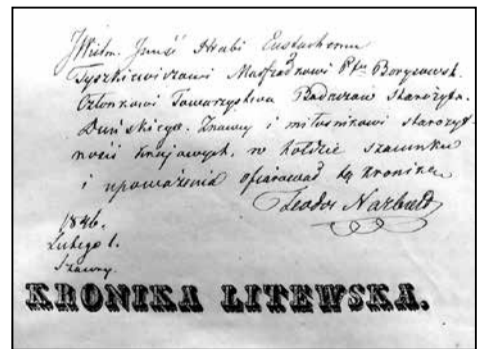 JWielm. Hrabi Eustachemu
Tyszkiewiczowi Marszałkowi Ptu Borysowsk.
Członkowi Towarzystwa Badaczów Starożytn.
Duńskiego. Znawcy i miłośnikowi starożyt
ności krajowych, w hołdzie szacunku
i upoważenia ofiarował tę kronikę
Teodor Narbutt
1846.
Lutego 1.
Szawry.
KRONIKA LITEWSKA.